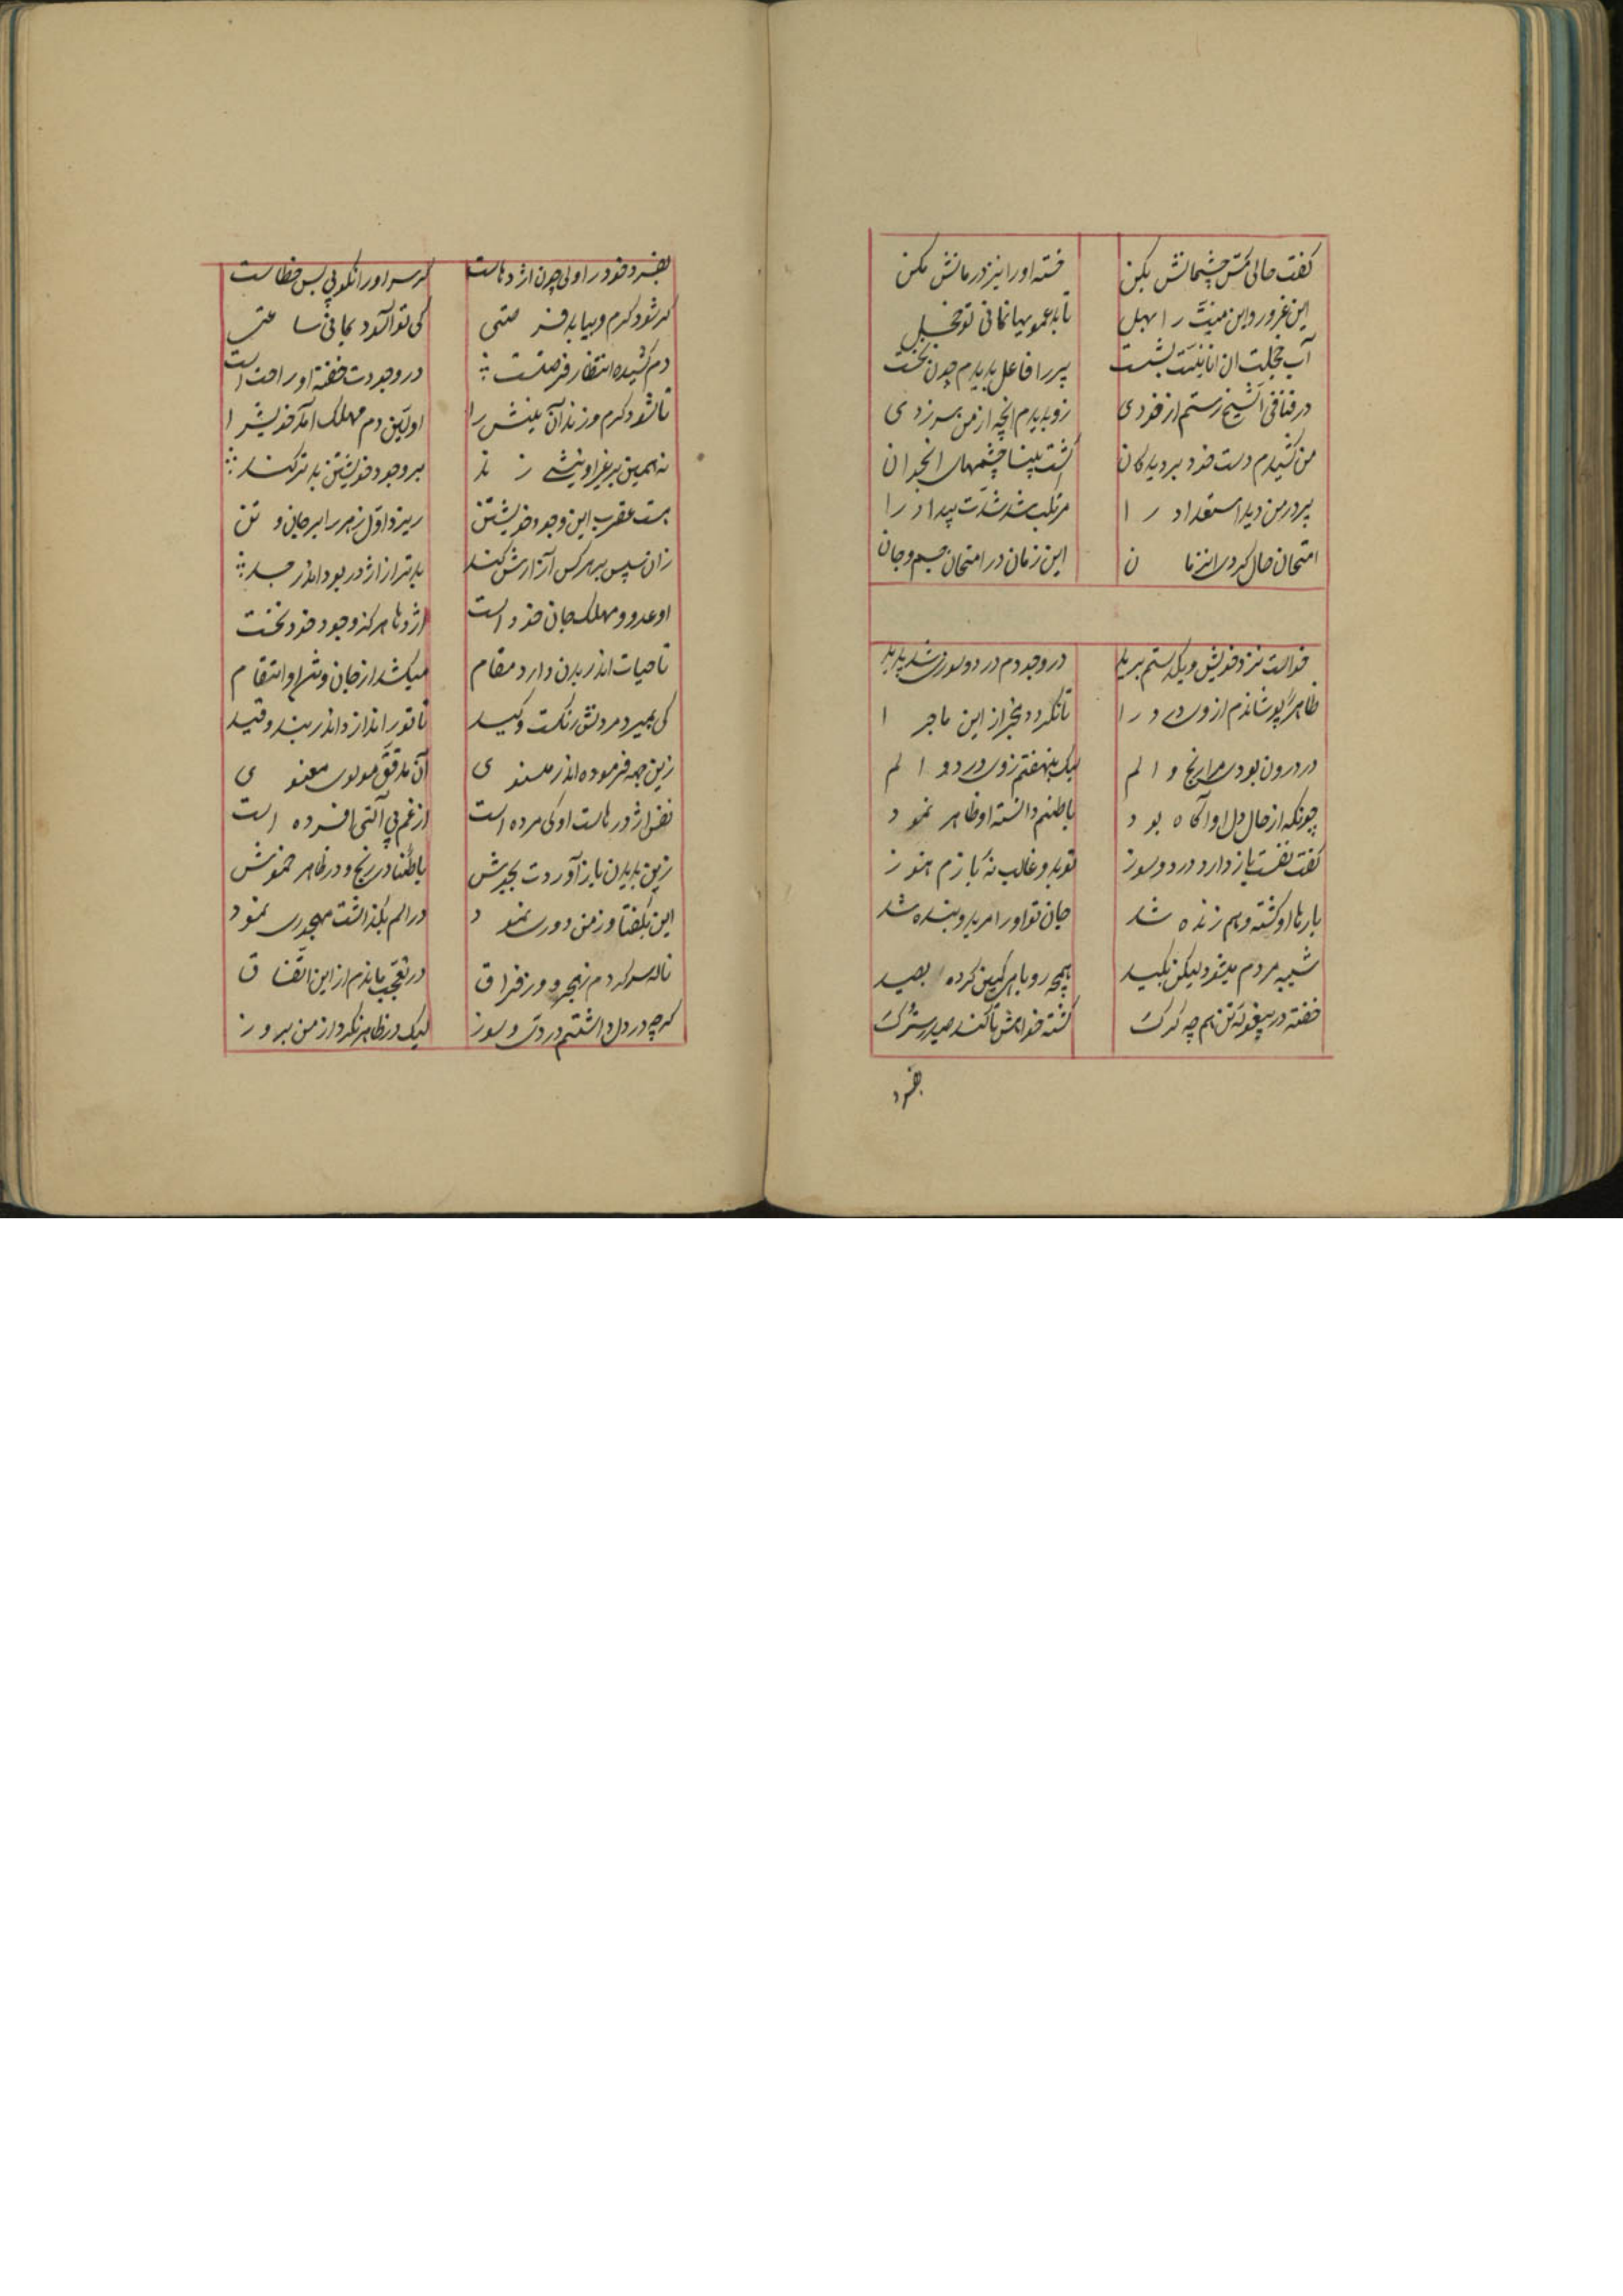 گفت حالی مس چشمانش بکن خسته او را نیز درمانش مکن
این غرور و این منیّت را بهل تا به عمو بهانمانی تو خجل
آب خجلت آن انانیّت بشست پیر را فاعل بدیدم چون نخست
در فنا فی الشیخ رستم از خودی زو بدیدم آنچه از من سر زدی
من کشیدم دست خود بر دیدگان گشت بینا چشمهای آنجوان
پیر در من دید استعداد را مرتکب شد شدّت بیداد را
امتحان حال کردی آنزمان این زمان در امتحان جسم و جان
خواست نزد خویش و یکدستم برید در وجودم درد و سوزی شد پدید
ظاهراً پوشاندم از وی درد را تا نگردد مخبر از این ماجرا
در درون بودی مرا رنج و الم لیک بنهفتم ز وی درد و الم
چونکه از حال دل او آگاه بود باطنم دانسته او ظاهر نمود
گفت نفست باز دارد درد و سوز تو بدو غالب نه بازم هنوز
بارها او کشته و هم زنده شد جان تو او را مرید و بنده شد
شبیه مردم میشود لیکن بکید همچو روباهی کمین کرده بصید
خفته در بیغوله تن همچه گرگ گشته خوابش تا کند صید سترگ
بفسرد
بفسرد خود را ولی چون اژدهاست گر سر او را نکوبی بس خطاست
گر شود گرم و بیابد فرصتی کی تو آسوده بمانی ساعتی
دم کشیده انتظار فرصتست در وجودت خفته او را حت است
تا شود گرم و زند آن نیش را اولین دم مهلک آمد خویش را
نه همین بر غیر او نیشی زند بر وجود خویشتن بدتر کند
هست عقرب این وجود خویشتن ریزد اوّل زهر را بر جان و تن
زان سپس بر هر کس آزارش کند بدتر از اژدر بود اندر جسد
او عدو و مهلک جان خود است اژدها هر کز وجود خود نخست
تا حیات اندر بدن دارد مقام میکشد از جان و تن او انتقام
کی بمیرد مردنش رنگست و کید تا تو را اندازد اندر بند و قید
زین جهه فرموده اندر مثنوی آن مدقّق مولوی معنوی
نفس اژدرهاست او کی مرده است از غم بی آلتی افسرده است
زین بریدن باز آوردت بجوش باطناً در رنج و در ظاهر خموش
این بگفتا و ز من دوری نمود در الم بگذاشت مهجوری نمود
ناله سر کردم ز هجر و وز فراق در تعجب ماندم از این اتّفاق
گرچه در دل داشتم درد و سوز لیک در ظاهر نکرد از من بروز